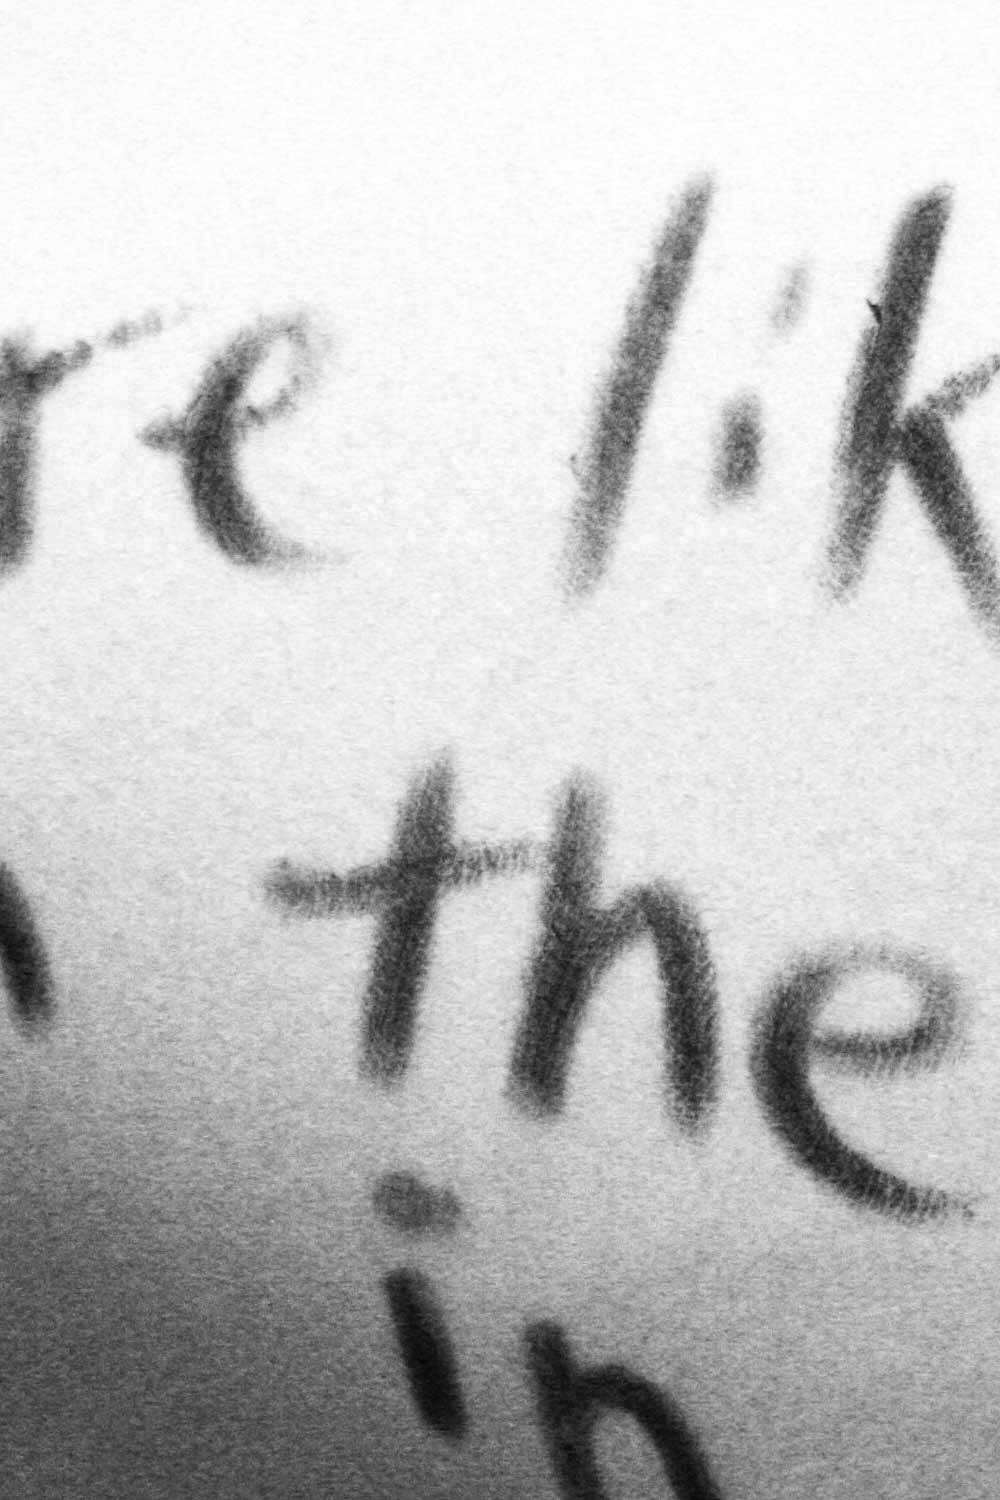 re lik
the
in